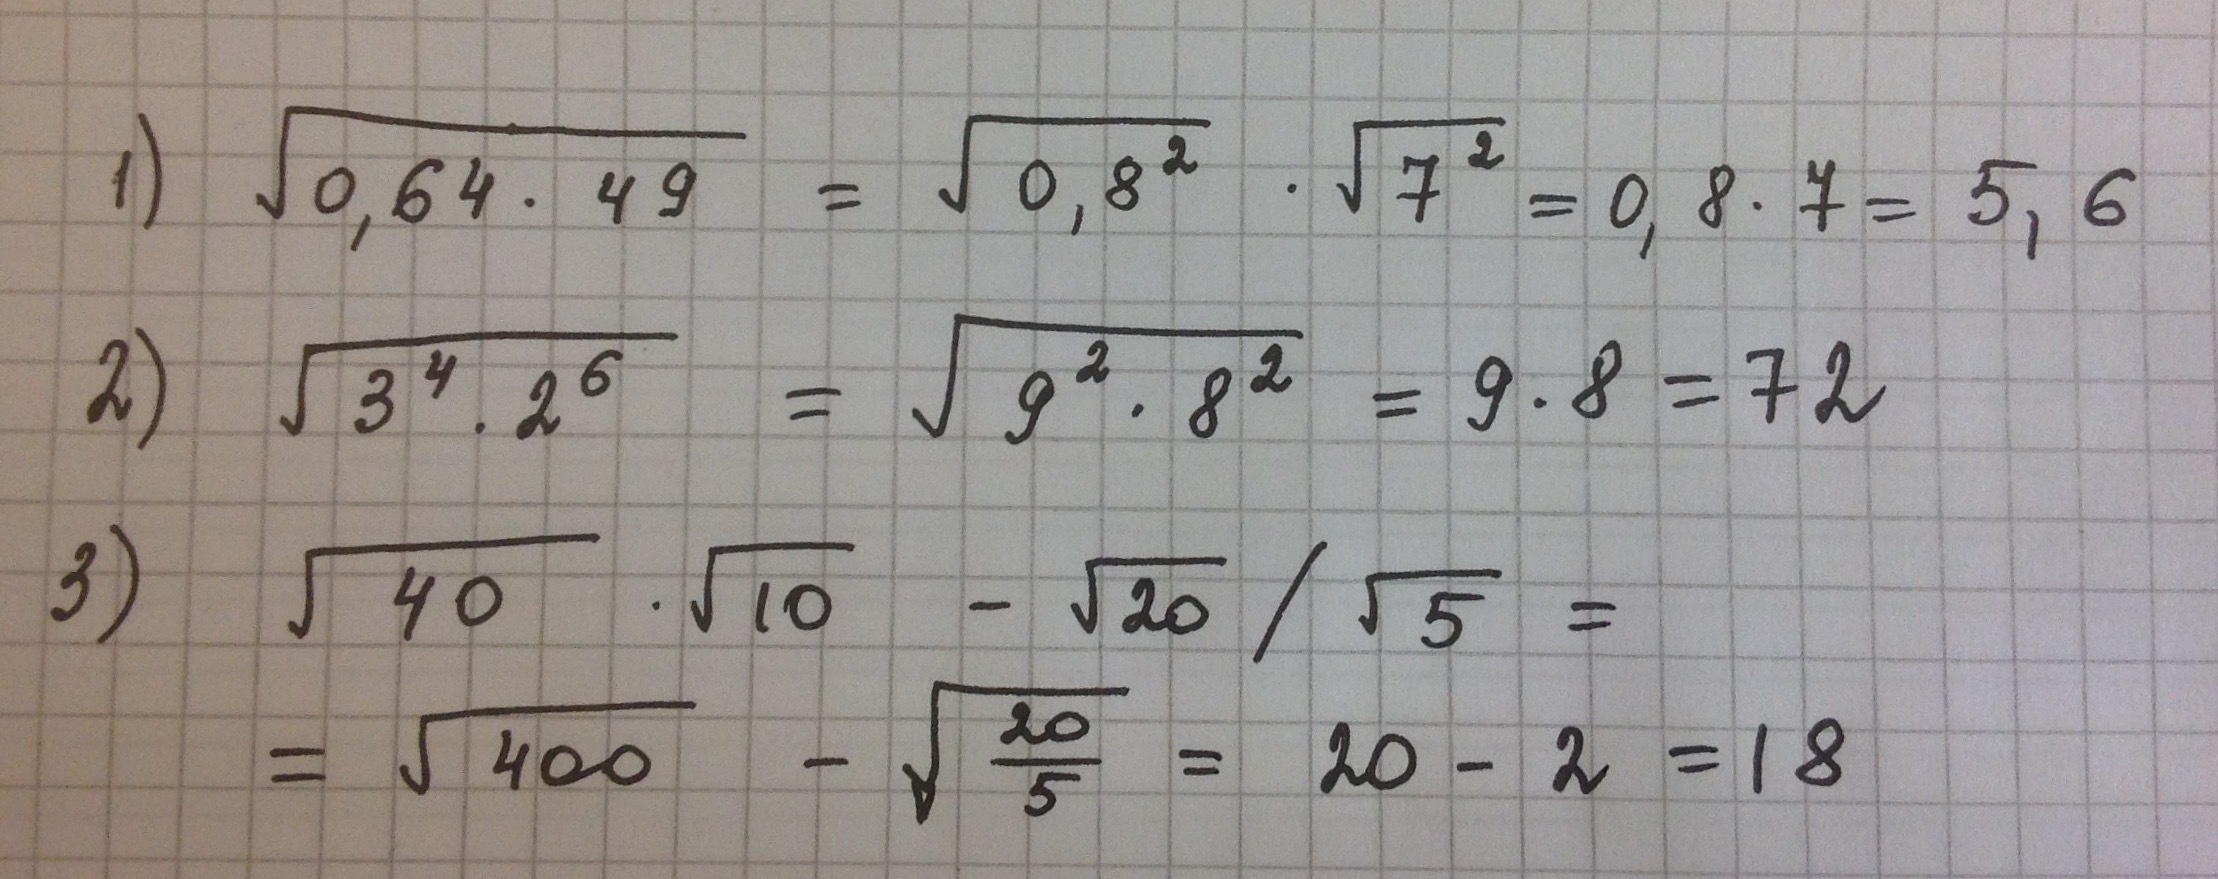 1) √(0,64 · 49) = √(0,8²) · √(7²) = 0,8 · 7 = 5,6
2) √(3⁴ · 2⁶) = √(9² · 8²) = 9 · 8 = 72
3) √40 · √10 - √20 / √5 =
= √400 - √(20/5) = 20 - 2 = 18